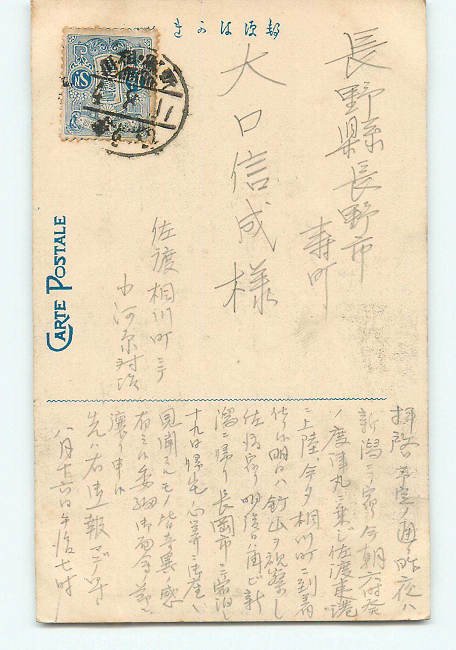 きかは便郵
長野縣長野市
壽町
大口信成様
佐渡相川町ニテ
小河原
CARTE POSTALE
拝啓 予定ノ通り昨夜ハ
新潟ニ宿リ今朝六時発
ノ度津丸ニ乗ジ佐渡夷港
ニ上陸、今夕相川町ニ到着
仕候 明日ハ鉱山ヲ視察シ
佐渡ニ宿リ明後日再ビ新
潟ニ帰リ長岡市ニ一泊シ
十九日帰宅ノ心算ニ御座候
見聞スルモノ皆奇異ノ感
有之候 委細御面会ノ節ニ
譲り申候
先ハ右御一報マデ
八月十六日午后七時